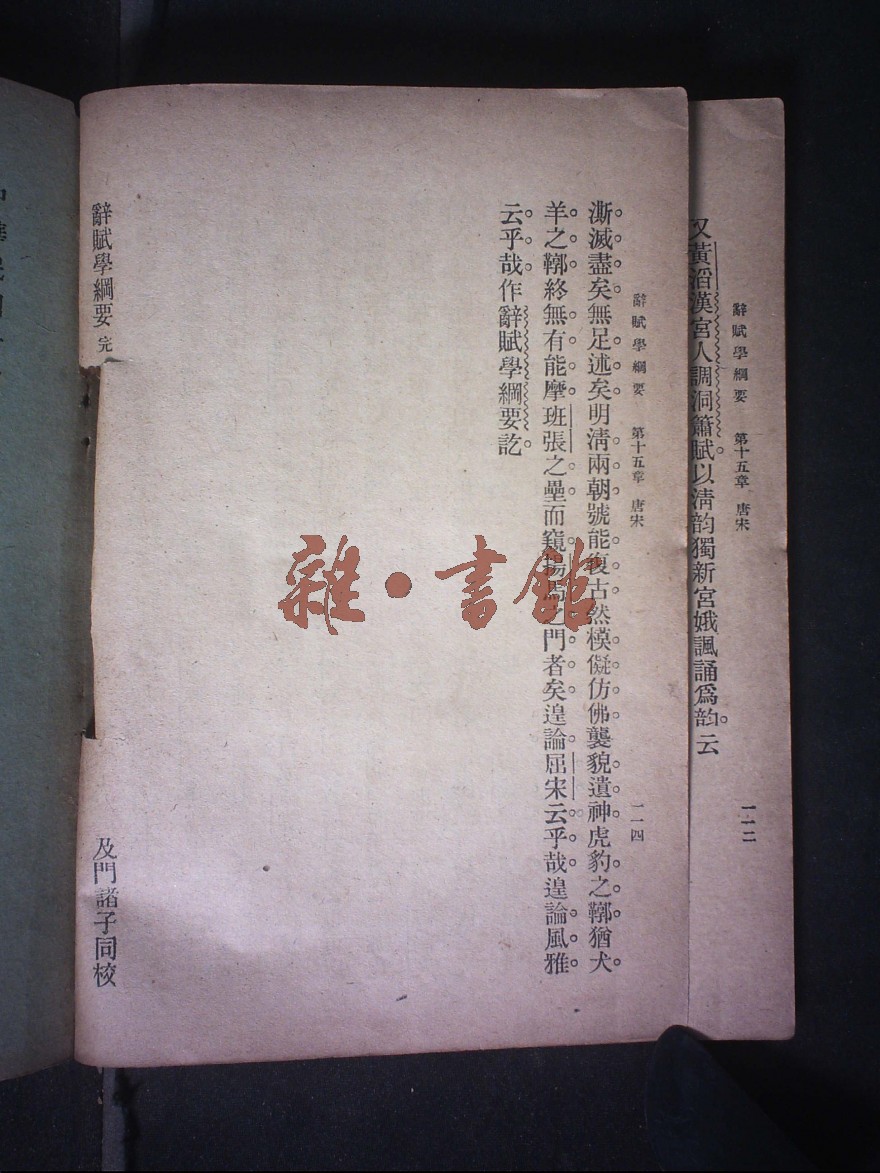 辭賦學綱要　第十五章　唐宋
一一二
又黃滔漢宮人誦洞簫賦以淸韵獨新宮娥諷誦爲韵。云
辭賦學綱要　第十五章　唐宋
一一四
澌滅盡矣無足述矣明淸兩朝號能復古然模儗仿佛襲貌遺神虎豹之鞹猶犬
羊之鞹終無有能摩班張之壘而窺揚馬之門者矣遑論屈宋云乎哉遑論風雅
云乎哉作辭賦學綱要訖
辭賦學綱要　完
及門諸子同校
雜·書館